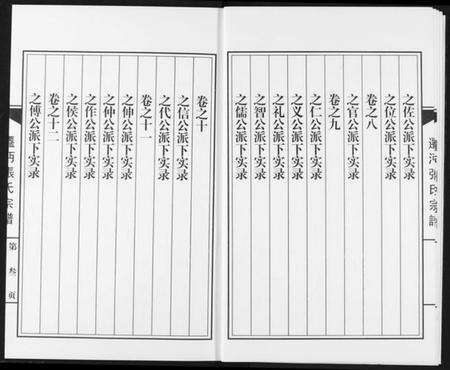 之佐公派下实录
之位公派下实录
卷之八
之官公派下实录
卷之九
之仁公派下实录
之义公派下实录
之礼公派下实录
之智公派下实录
之儒公派下实录
卷之十
之信公派下实录
之代公派下实录
卷之十一
之伸公派下实录
之仲公派下实录
之作公派下实录
之侯公派下实录
卷之十二
之傅公派下实录
西张氏宗谱
第叁页